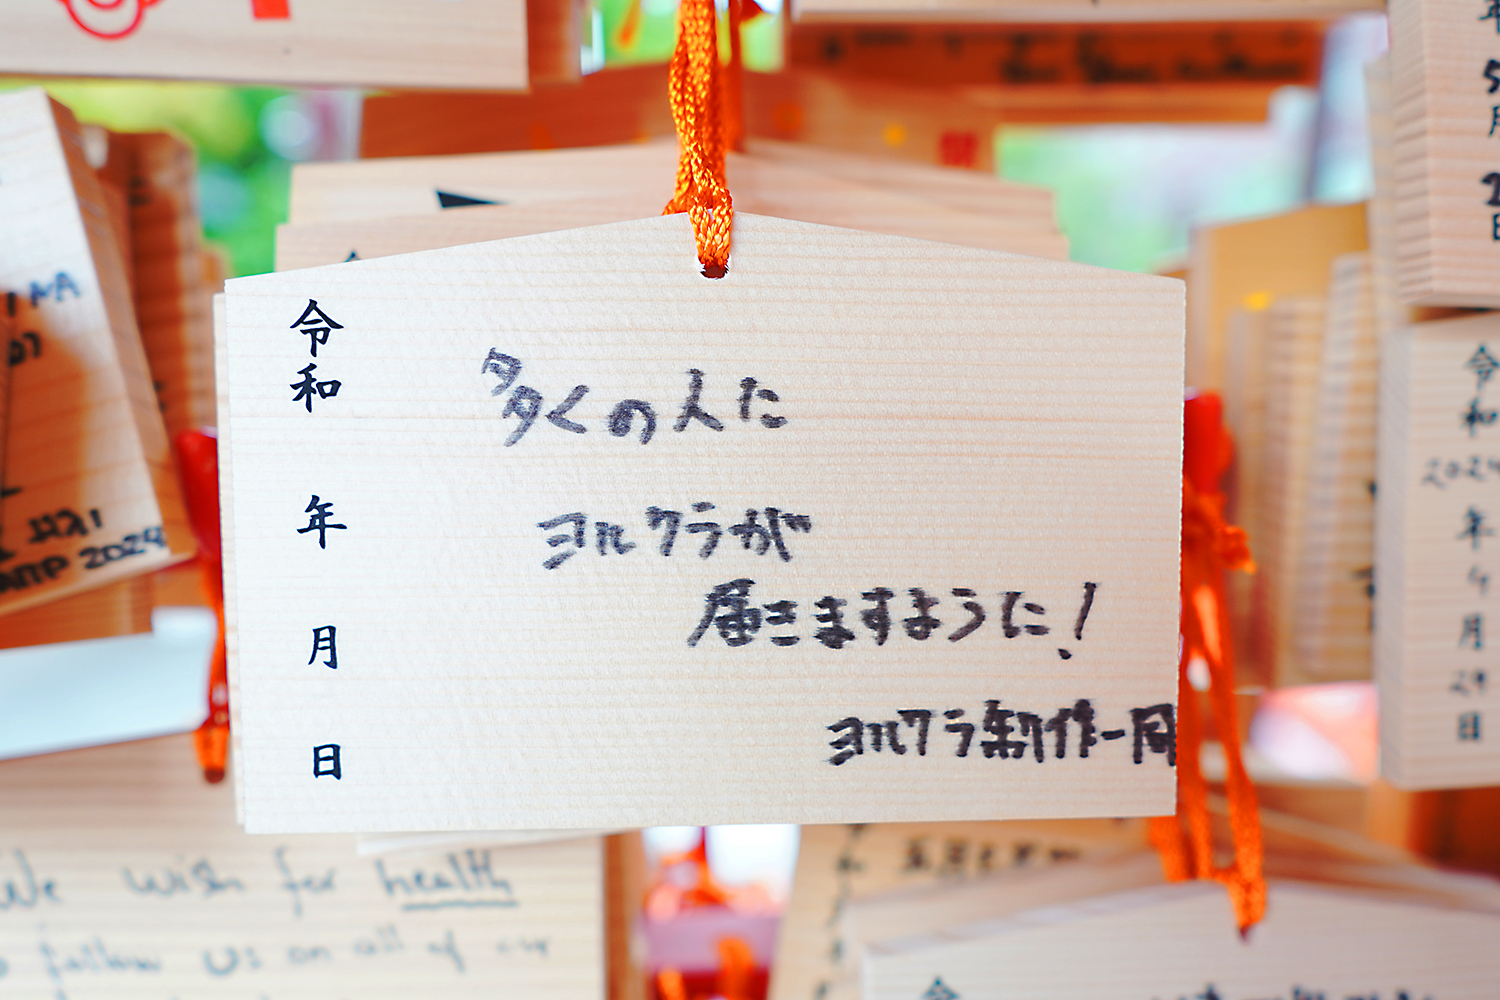 令和 年 月 日
多くの人た
ヨルクラが
届きますように!
ヨルクラ制作一同
We wish for health
follow us on all of our
2024
令和
2024
年
4
月
29
日